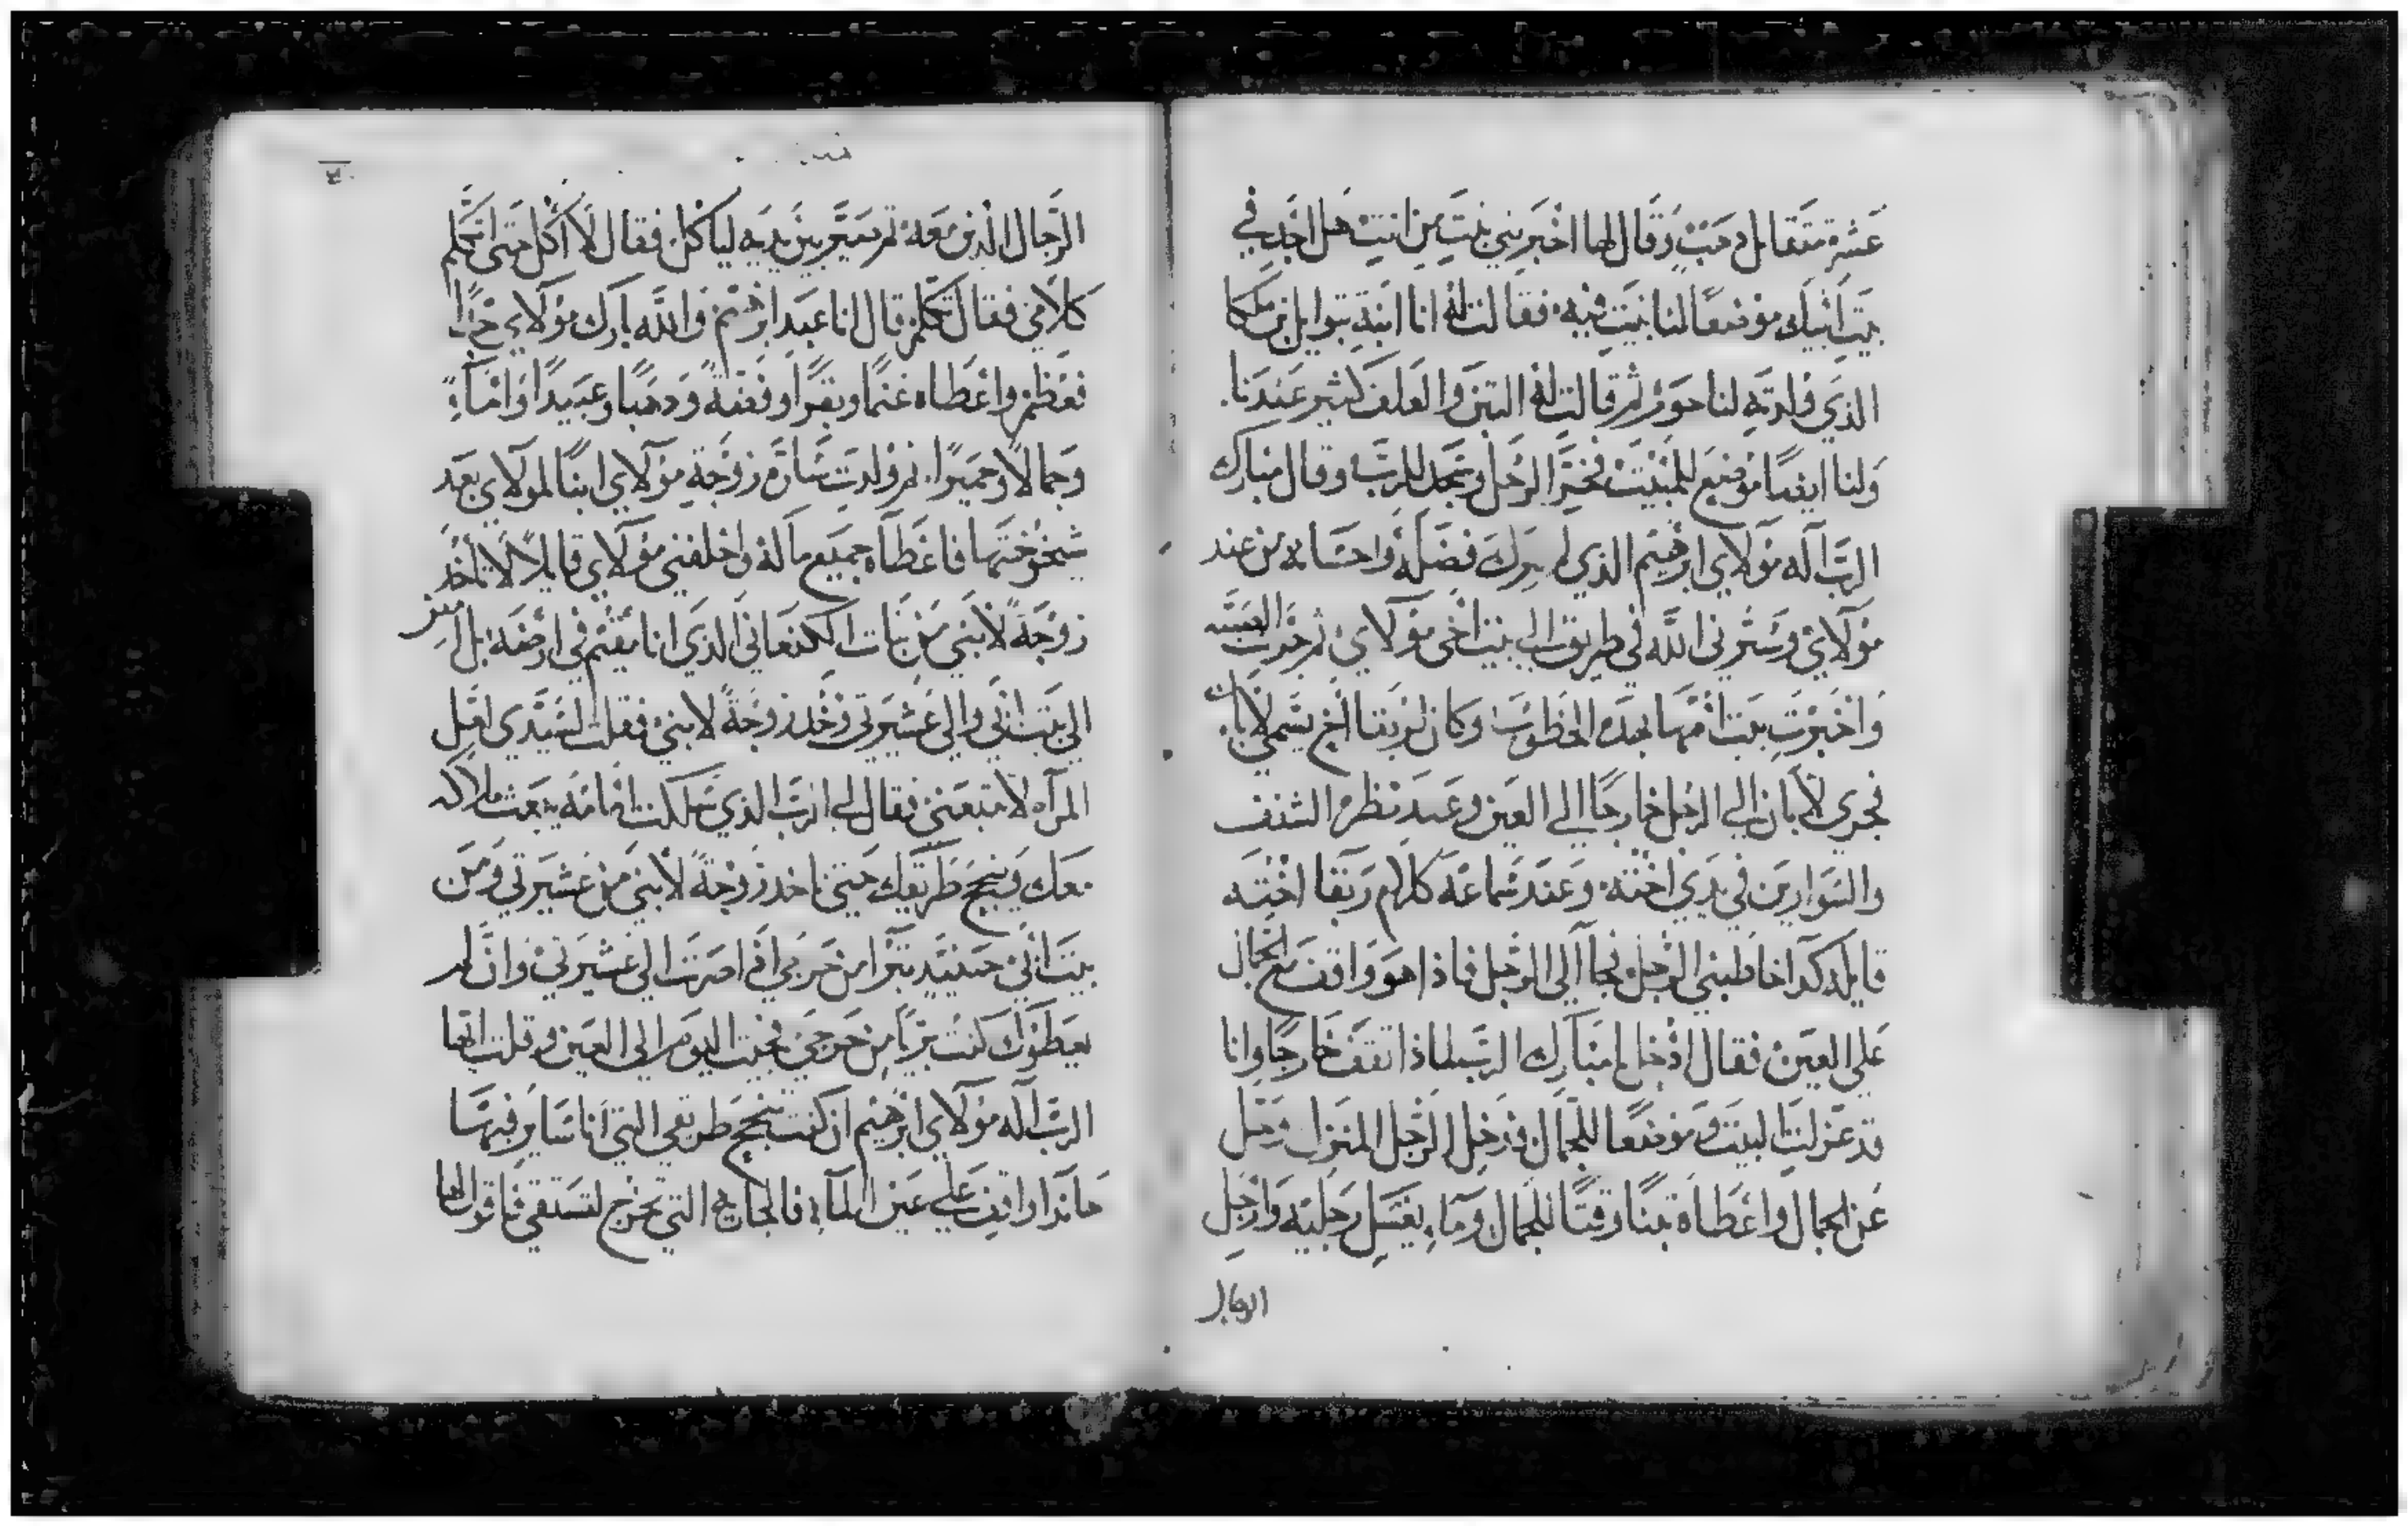 عشرة متقال دهب وقال لها اخبريني بنت من انتِ هل اجد في
بيت ابيك موضعًا لنا نبيت فيه فقالت له انا ابنة بتوايل بن ملكا
الذي ولدته لناحور ثم قالت له التبن والعلف كثير عندنا
ولنا ايضًا موضع للمبيت فخرّ الرجل وسجد للربّ وقال مبارك
الربّ اله مولاي ابرهيم الذي لم يترك فضله واحسانه من عند
مولاي وسيّرني اللّه في طريق الى بيت اخي مولاي ثم جرت الصبيّه
واخبرت بيت امّها بهده الخطوب وكان لربقا اخ يسمي لابان
فجري لابان الي الرجل خارجًا الي العين وعند نظره الشنف
والسوارين في يدي اخته وعند سماعه كلام ربقا اخته
قايله كدا خاطبني الرجل فجا الى الرجل فاذا هو واقف مع الجمال
علي العين فقال ادخل يا مبارك الربّ لماذا تقف خارجًا وانا
قد عزلت البيت وموضعا للجمال فدخل الرجل المنزل وحل
عن الجمال واعطاه تبنًا وقتًا للجمال وماء يغسل رجليه وارجل
الرجال
الرجال الذين معه ثم صيّر بين يديه لياكل فقال لا اكل حتى اتكلم
كلامي فقال تكلم قال انا عبد ابرهيم واللّه بارك مولاي جدًا
فعظم واعطاه غنمًا وبقرًا وفضةً ودهبًا وعبيدًا واماءً
وجمالًا وحميرًا ثم ولدت سارّه زوجة مولاي ابنًا لمولاي بعد
شيخوختها فاعطاه جميع ماله واحلفني مولاي قايلًا لا تاخد
زوجةً لابني من بنات الكنعاني الذي انا مقيم في ارضه بل امض
الي بيت ابي والي عشيرتي وخد زوجةً لابني فقلت لسيّدي لعل
المرآه لا تتبعني فقال لي الربّ الذي سلكت امامه يبعث ملاكه
معك وينجح طريقك حتي تاخد زوجةً لابني من عشيرتي ومن
بيت ابي حينئيدٍ تبرا من حرجي اذا صرت الي عشيرتي وان لم
يعطوك كنت بريًا من حرجي فجيت اليوم الي العين وقلت ايها
الربّ اله مولاي ابرهيم ان كنت تنجح طريقي التي انا ساير فيها
هانذا واقف علي عين المآء فالجاريه التي تخرج لتستقي فاقول لها